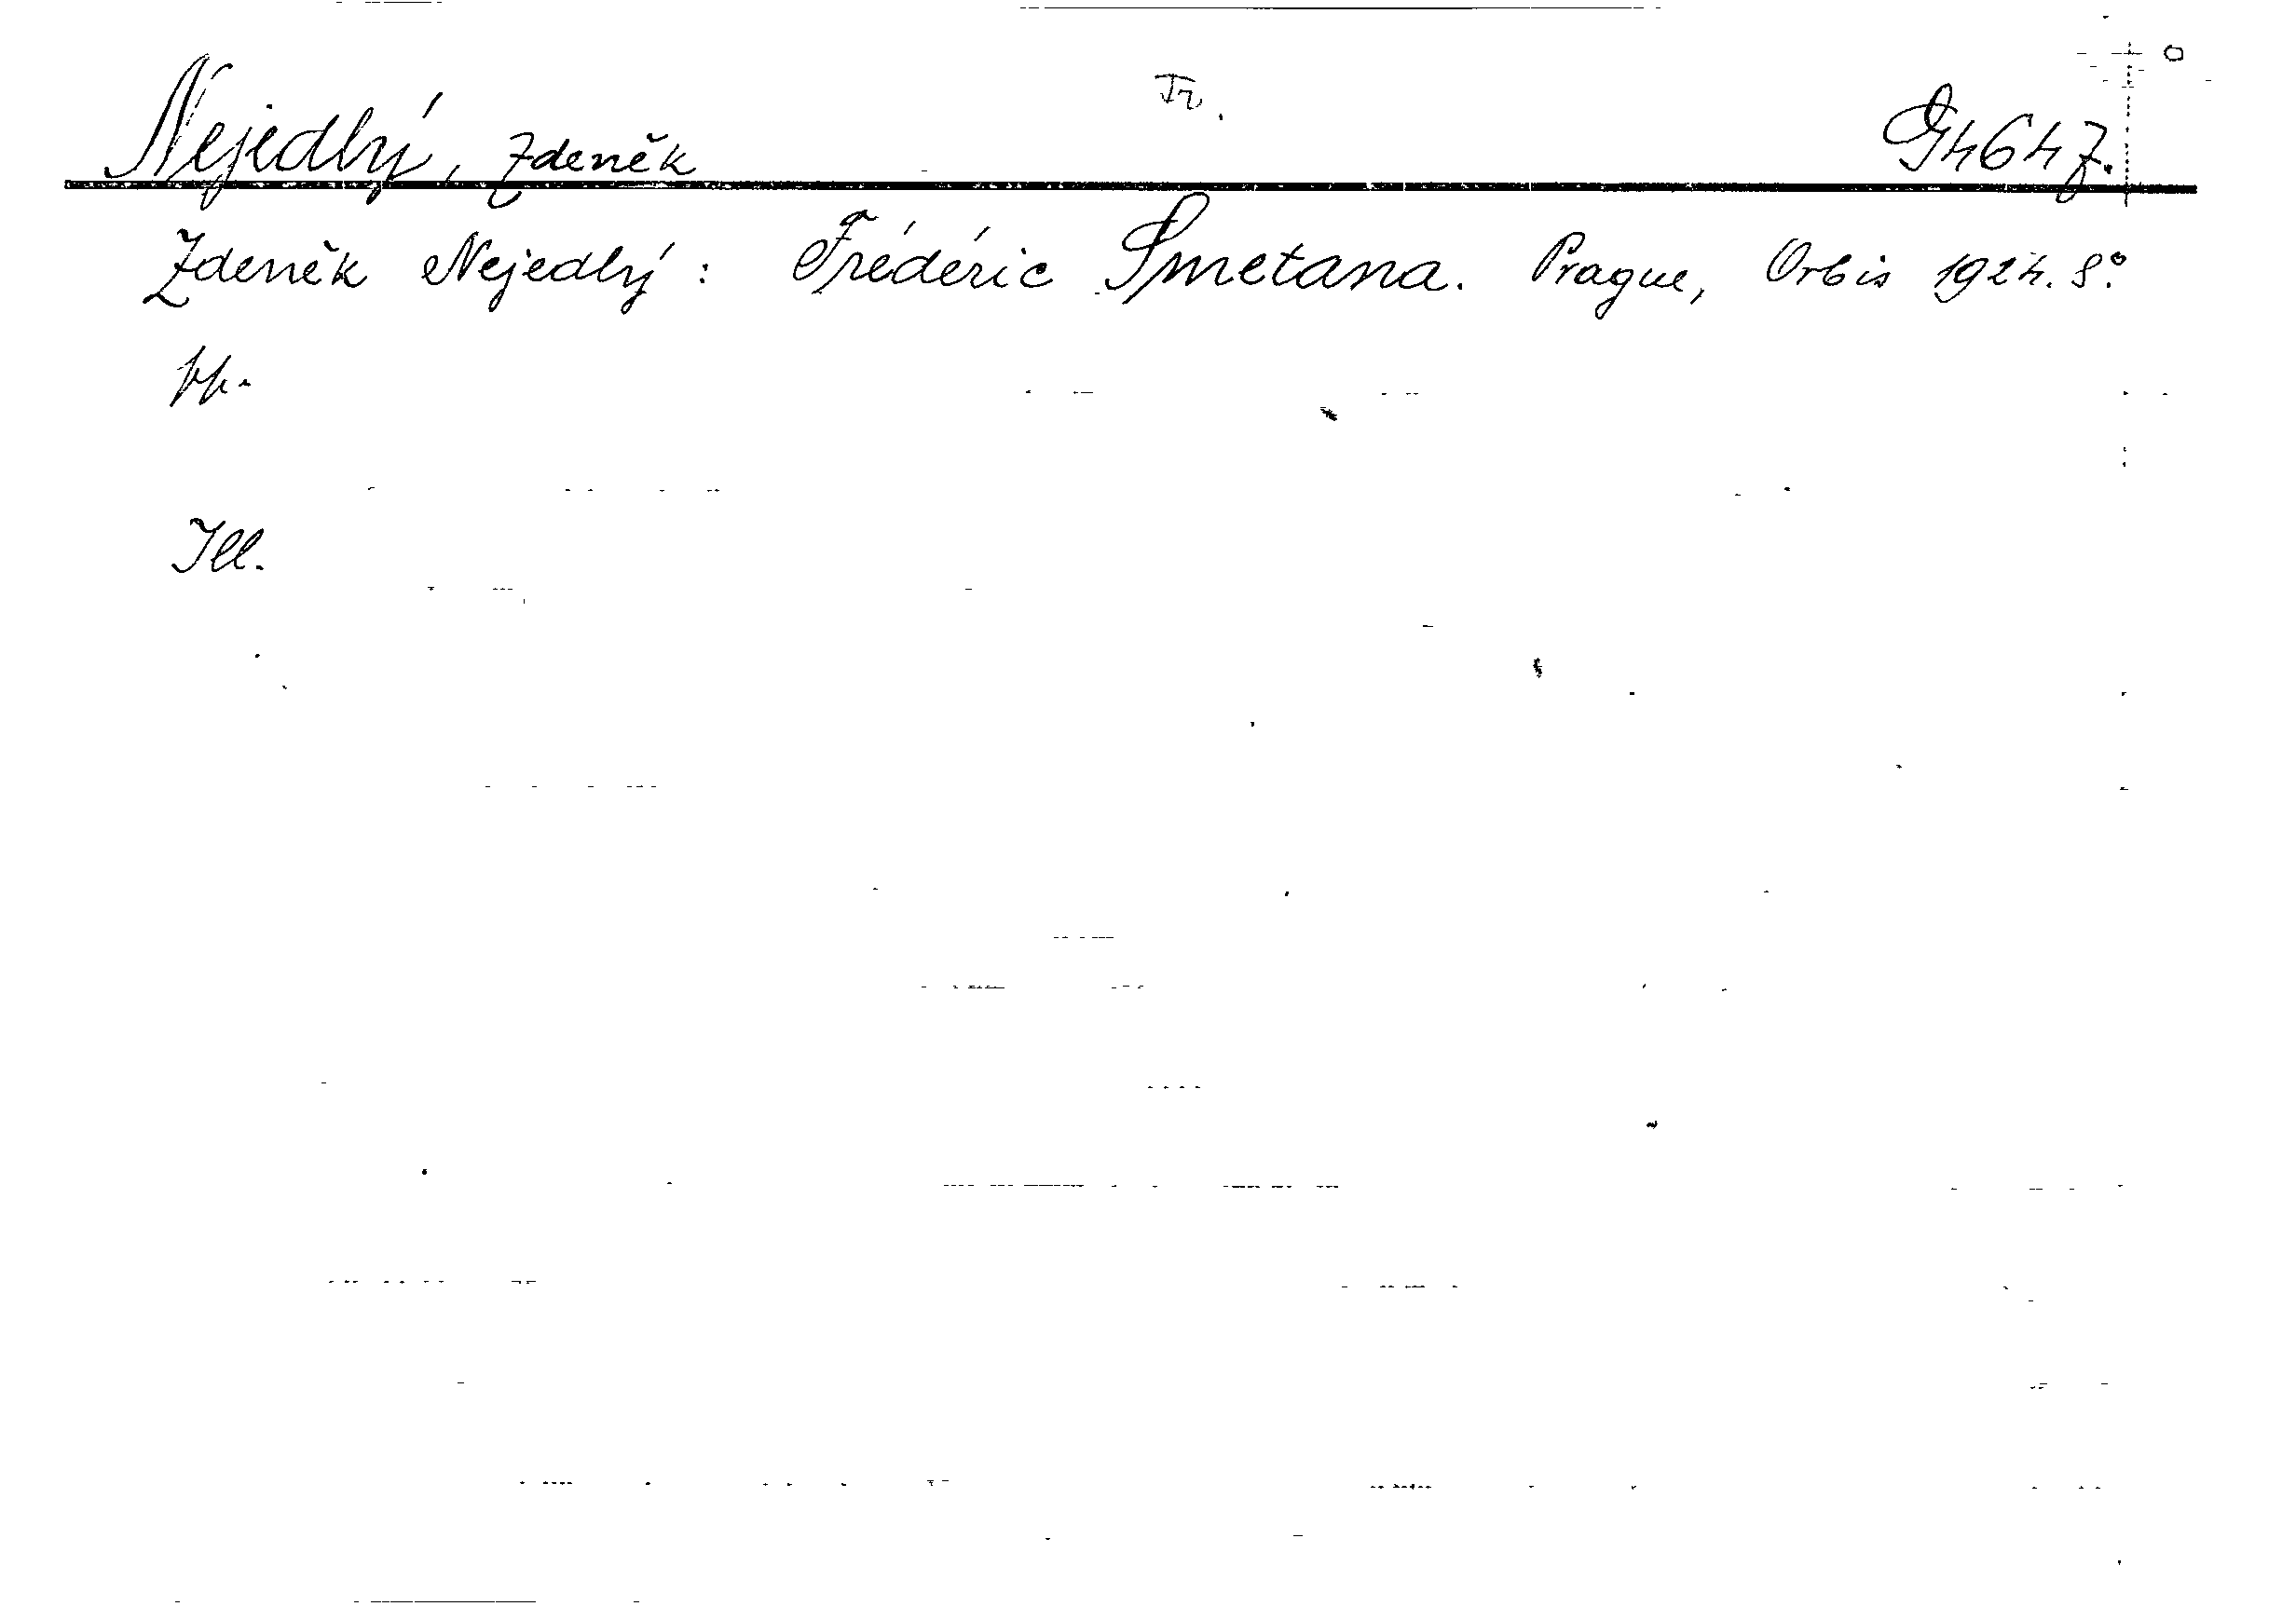 Fr.
Nejedlý, Zdeněk G 4647.
Zdeněk Nejedlý: Frédéric Smetana. Prague, Orbis 1924. 8°.
Ill.